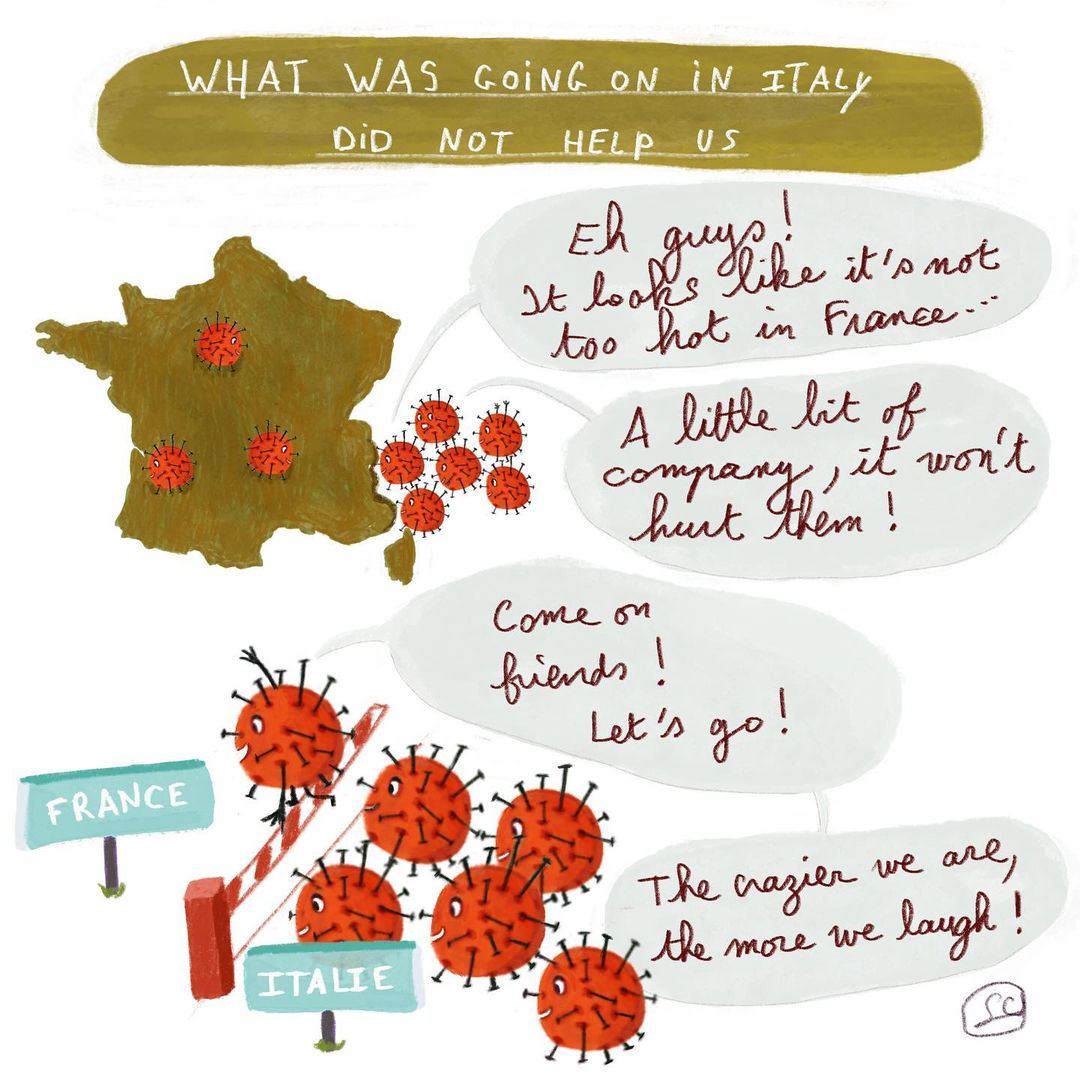 WHAT WAS GOING ON IN ITALY
DID NOT HELP US
Eh guys!
It looks like it's not
too hot in France...
A little bit of
company, it won't
hurt them!
Come on
friends!
Let's go!
FRANCE
The crazier we are,
the more we laugh!
ITALIE
SC